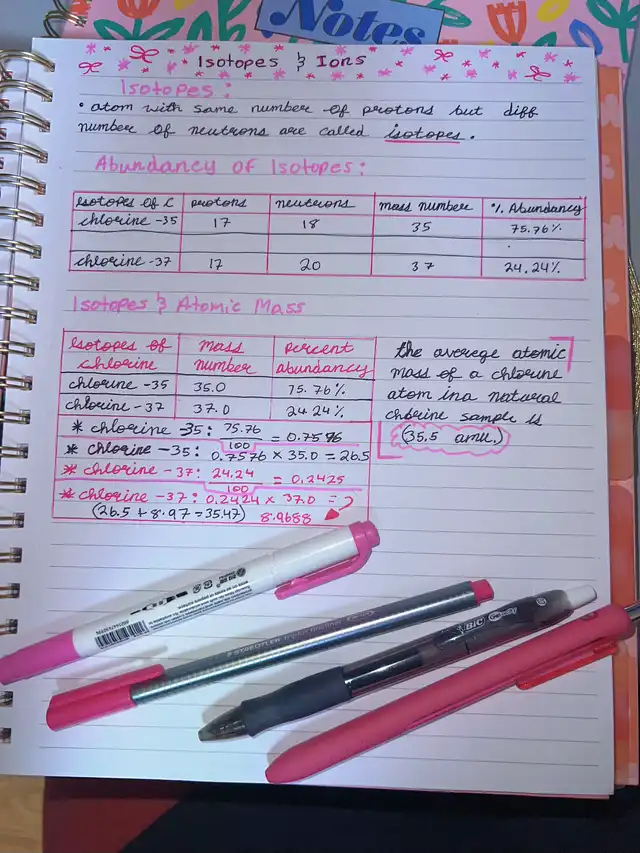 Notes
Isotopes & Ions
Isotopes:
• atom with same number of protons but diff
number of neutrons are called isotopes.
Abundancy of Isotopes:
Isotopes of C protons neutrons mass number % Abundancy
chlorine -35 17 18 35 75.76%
chlorine -37 17 20 37 24.24%
Isotopes & Atomic Mass
Isotopes of chlorine mass number percent abundancy
chlorine -35 35.0 75.76%
chlorine -37 37.0 24.24%
* chlorine -35: 75.76/100 = 0.7576
* chlorine -35: 0.7576 × 35.0 = 26.5
* chlorine -37: 24.24/100 = 0.2425
* chlorine -37: 0.2424 × 37.0 = ?
(26.5 + 8.97 = 35.47) 8.9688
the averege atomic
mass of a chlorine
atom in a natural
chlorine sample is
(35.5 amu.)
STAEDTLER triplus fineliner
BIC